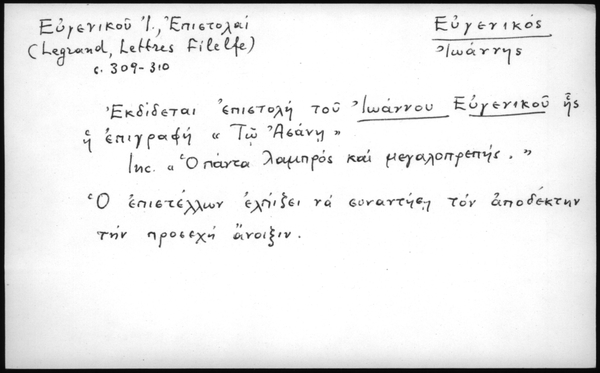 Εὐγενικοῦ Ἰ., Ἐπιστολαί
(Legrand, Lettres Filelfe)
σ. 309-310
Εὐγενικός
Ἰωάννης
Ἐκδίδεται ἐπιστολή τοῦ Ἰωάννου Εὐγενικοῦ ἧς
ἡ ἐπιγραφή « Τῷ Ἀσάνῃ »
Inc. « Ὁ πάντα λαμπρός καί μεγαλοπρεπής. »
Ὁ ἐπιστέλλων ἐλπίζει νά συναντήσῃ τόν ἀποδέκτην
τήν προσεχῆ ἄνοιξιν.